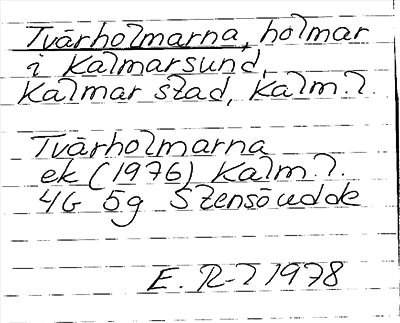 Tvärholmarna, holmar
i Kalmarsund,
Kalmar stad, Kalm. l.
Tvärholmarna
ek (1976) Kalm. l.
4G 5g Stensö udde
E. R-l 1978